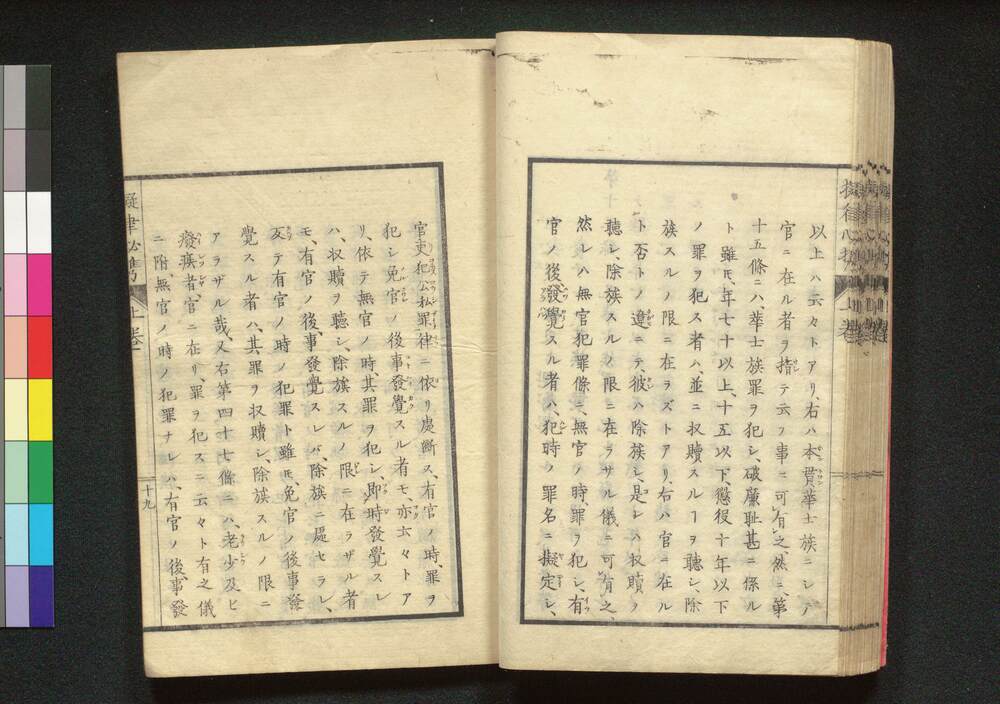 以上ハ云々トアリ、右ハ本貫華士族ニシテ
官ニ在ル者ヲ指テ云フ事ニ可有之、然ニ第
十五條ニハ、華士族罪ヲ犯シ、破廉耻甚ニ係ル
ト雖モ、年七十以上、十五以下、懲役十年以下
ノ罪ヲ犯ス者ハ、並ニ収贖スルヿヲ聽シ、除
族スルノ限ニ在ラズトアリ、右ハ官ニ在ル
ト否トノ違ニテ、彼ハ除族シ、是レハ収贖ヲ
聽シ、除族スルノ限ニ在ラサル儀ニ可有之、
然レハ無官犯罪條ニ、無官ノ時罪ヲ犯シ、有
官ノ後發覺スル者ハ、犯時ノ罪名ニ擬定シ、
官吏犯公私罪律ニ依リ處斷ス、有官ノ時、罪ヲ
犯シ免官ノ後事發覺スル者モ、亦云々トア
リ、依テ無官ノ時、其罪ヲ犯シ、即時發覺スレ
ハ、収贖ヲ聽シ、除族スルノ限ニ在ラザル者
モ、有官ノ後、事發覺スレバ、除族ニ處セラレ、
反テ有官ノ時ノ犯罪ト雖モ、免官ノ後事發
覺スル者ハ、其罪ヲ収贖シ、除族スルノ限ニ
アラザル哉、又右第四十七條ニハ、老少及ヒ
癈疾者官ニ在リ、罪ヲ犯スニ云々ト有之儀
ニ附、無官ノ時ノ犯罪ナレハ、有官ノ後、事發
擬律必携 上卷一
十九